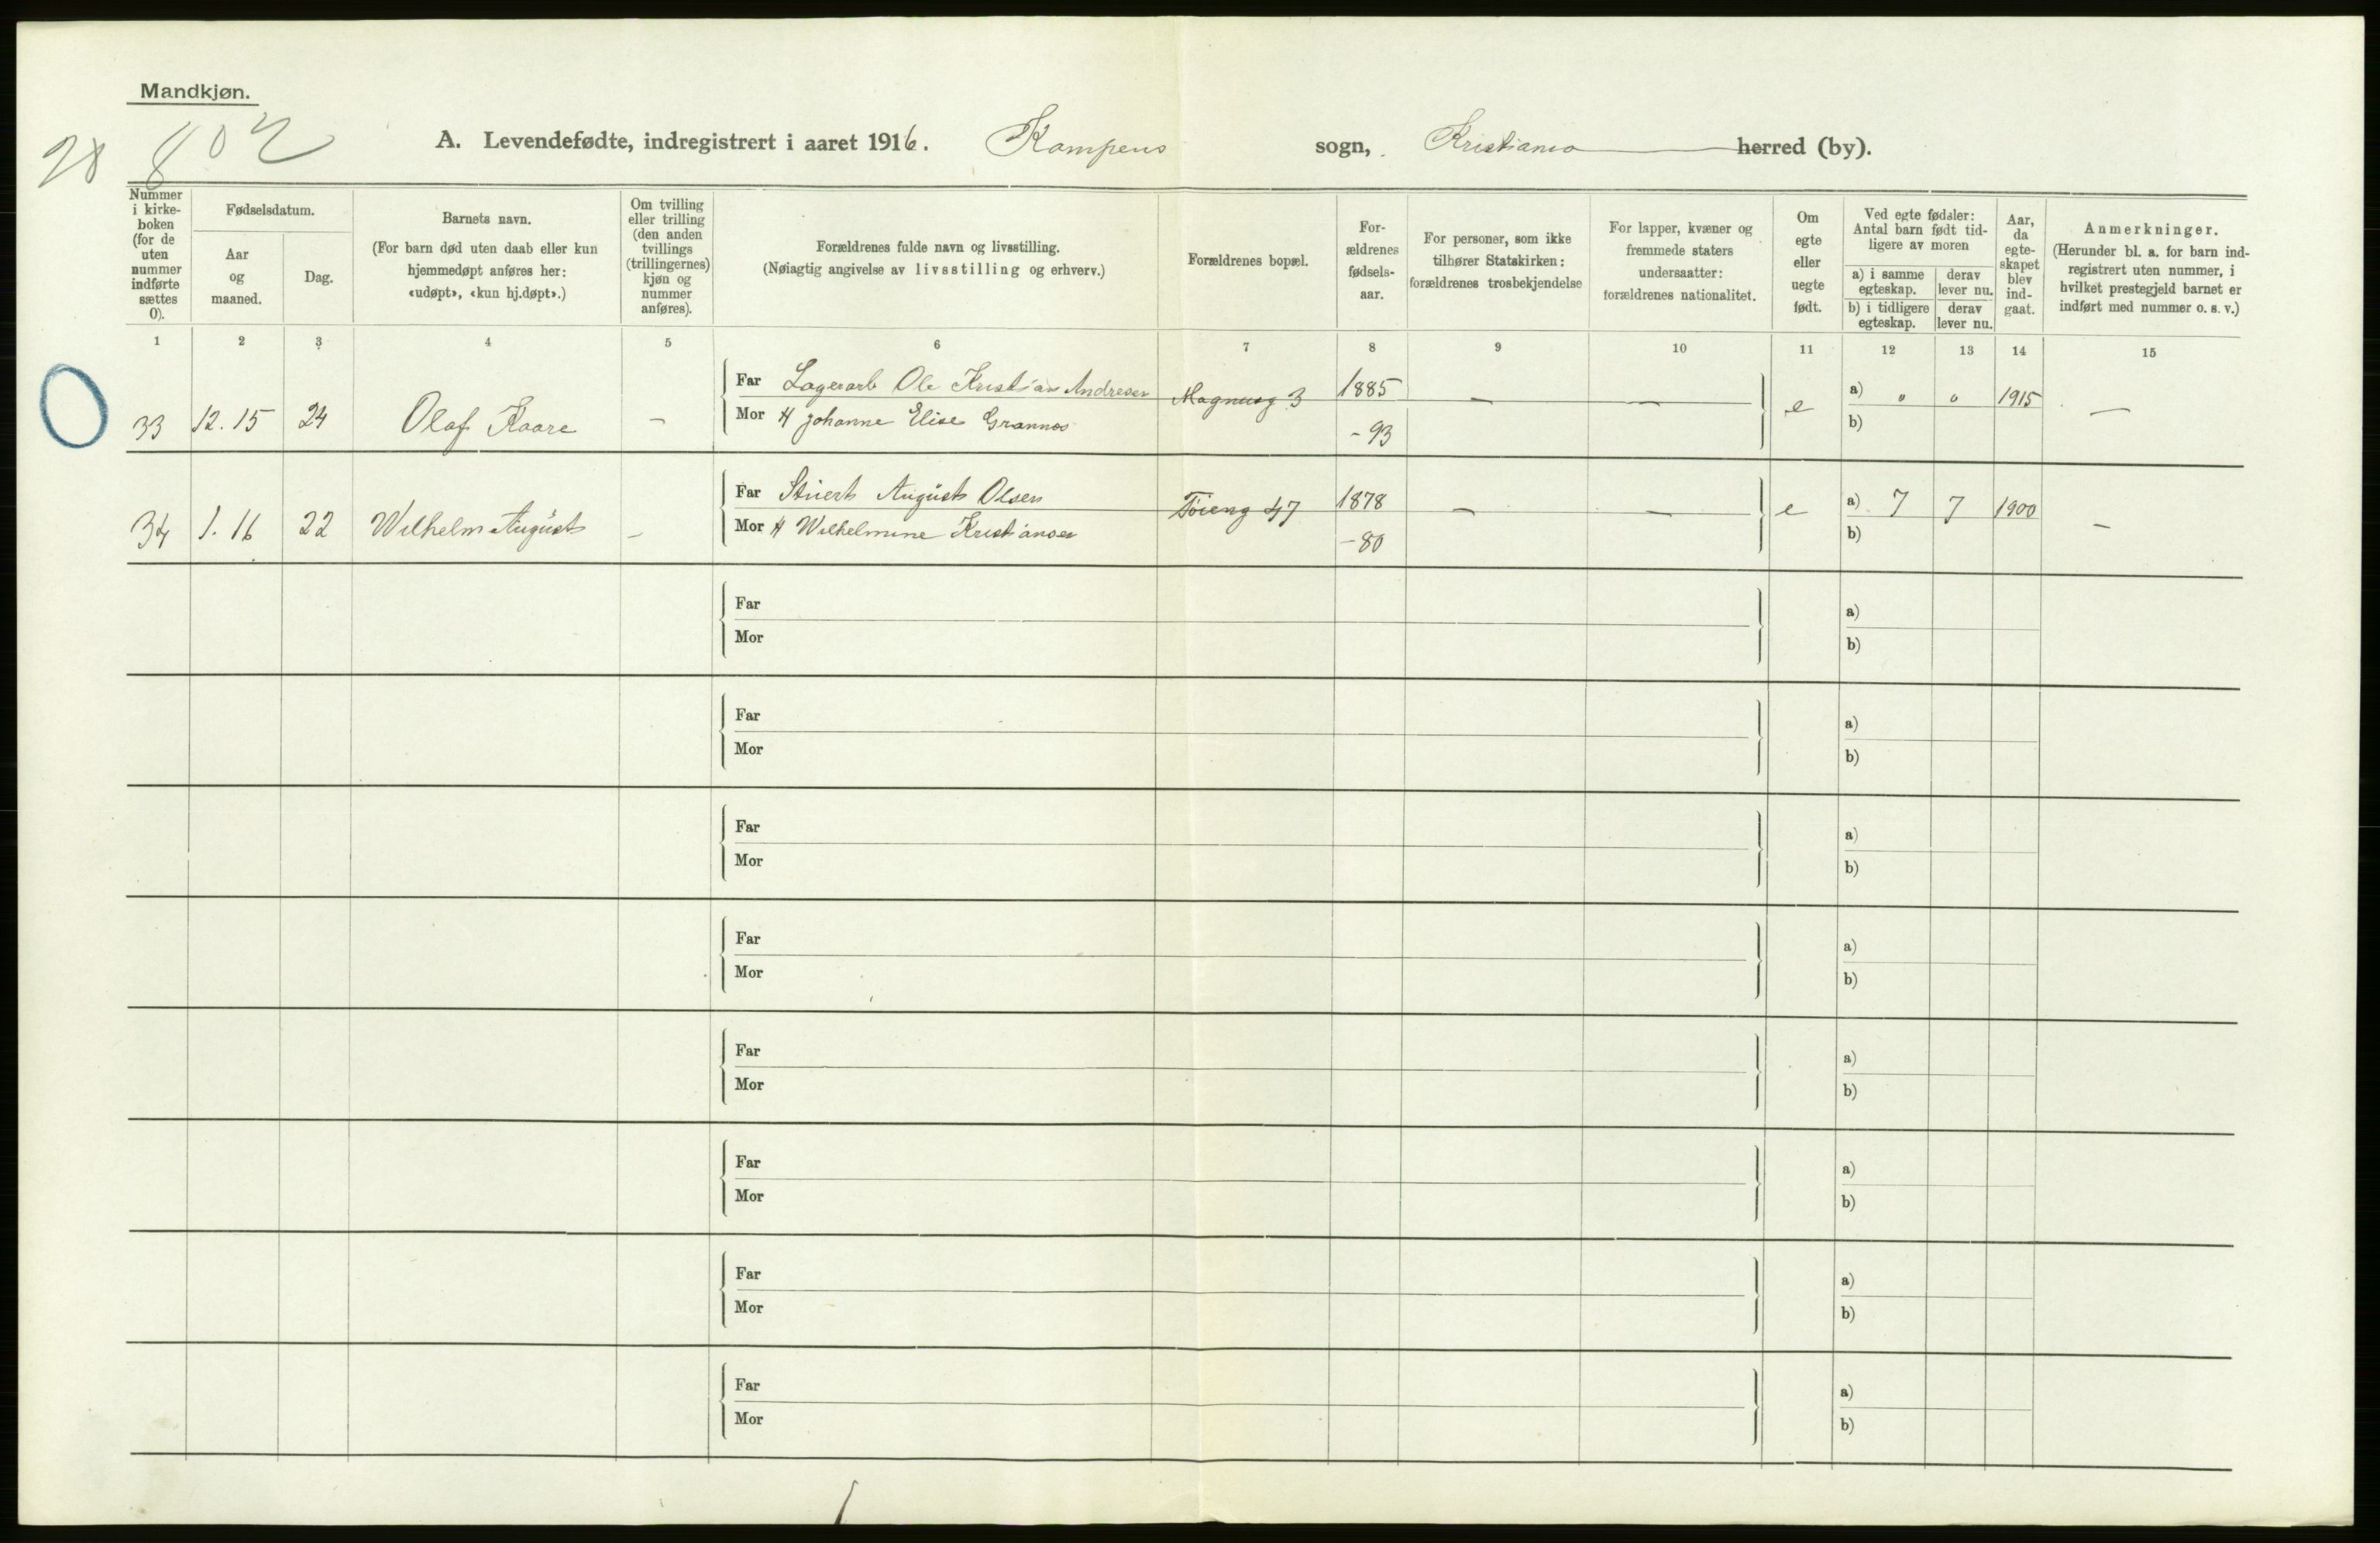 Mandkjøn.
28 802
A. Levendefødte, indregistrert i aaret 1916. Kampens sogn, Kristiania herred (by).
Nummer i kirkeboken (for de uten nummer indførte sættes 0).
Fødselsdatum.
Aar og maaned.
Dag.
Barnets navn.
(For barn død uten daab eller kun hjemmedøpt anføres her: «udøpt», «kun hj.døpt».)
Om tvilling eller trilling (den anden tvillings (trillingernes) kjøn og nummer anføres).
Forældrenes fulde navn og livsstilling.
(Nøiagtig angivelse av livsstilling og erhverv.)
Forældrenes bopæl.
Forældrenes fødselsaar.
For personer, som ikke tilhører Statskirken: forældrenes trosbekjendelse
For lapper, kvæner og fremmede staters undersaatter: forældrenes nationalitet.
Om egte eller uegte født.
Ved egte fødsler: Antal barn født tidligere av moren
a) i samme egteskap.
derav lever nu.
b) i tidligere egteskap.
derav lever nu.
Aar, da egteskapet blev indgaat.
Anmerkninger.
(Herunder bl. a. for barn indregistrert uten nummer, i hvilket prestegjeld barnet er indført med nummer o. s. v.)
1 2 3 4 5 6 7 8 9 10 11 12 13 14 15
0
Far Lagerarb Ole Kristian Andresen Magnusg 3 1885 — — e a) 0 0 1915 —
33 12.15 24 Olaf Kaare — Mor H Johanne Elise Grannes - 93 b)
Far Stuert August Olsen Töieng 47 1878 — — e a) 7 7 1900 —
34 1.16 22 Wilhelm August - Mor H Wilhelmine Kristiansen - 80 b)
Far a)
Mor b)
Far a)
Mor b)
Far a)
Mor b)
Far a)
Mor b)
Far a)
Mor b)
Far a)
Mor b)
Far a)
Mor b)
Far a)
Mor b)